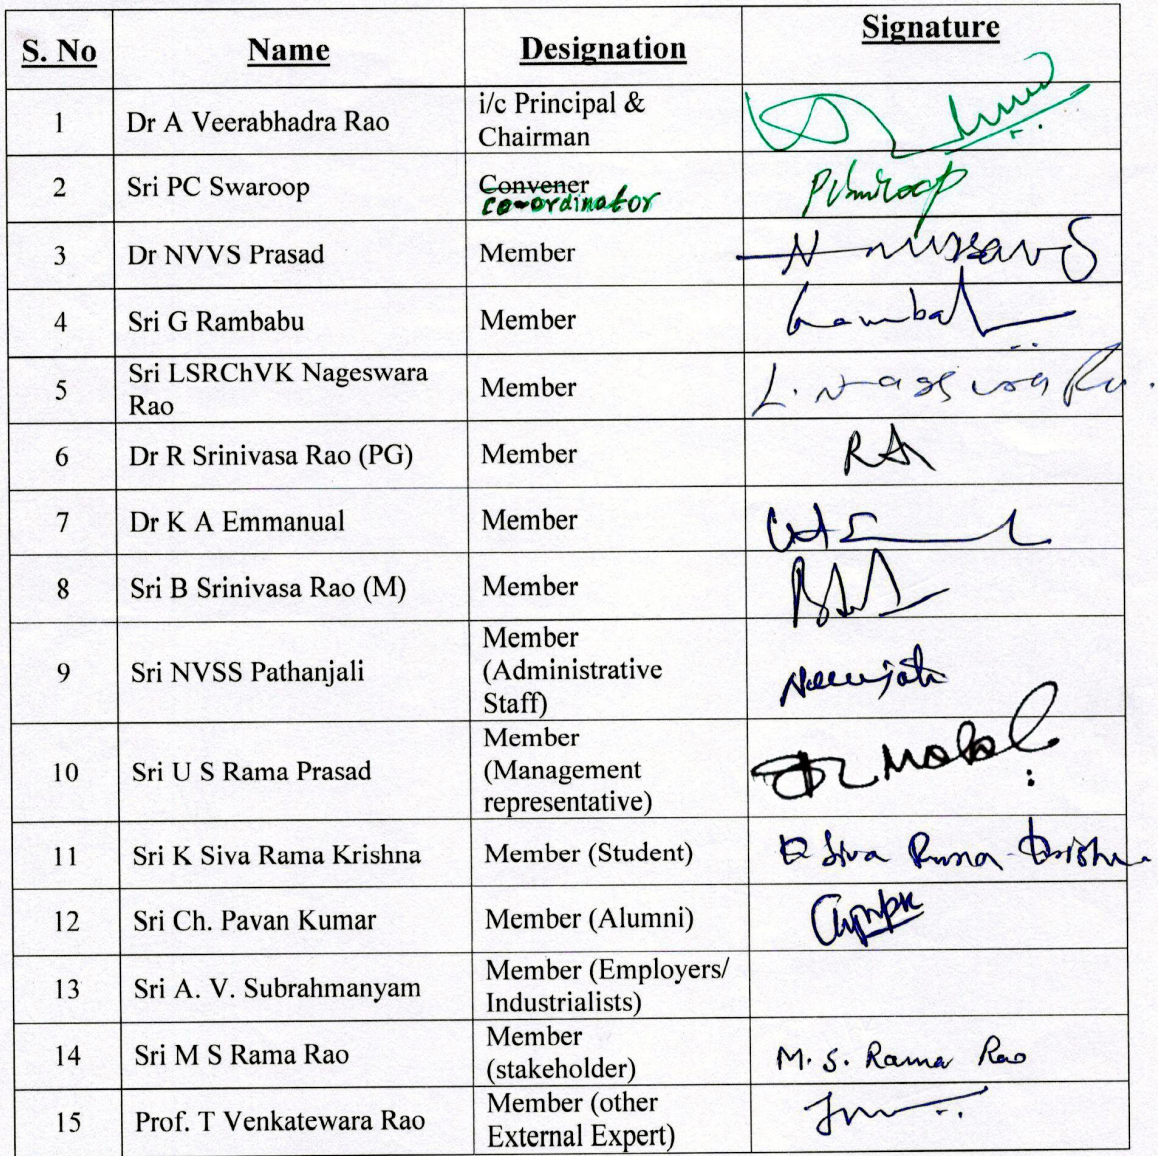 S. No Name Designation Signature
1 Dr A Veerabhadra Rao i/c Principal &
Chairman
2 Sri PC Swaroop Convener
co-ordinator
3 Dr NVVS Prasad Member
4 Sri G Rambabu Member
5 Sri LSRChVK Nageswara
Rao Member
6 Dr R Srinivasa Rao (PG) Member
7 Dr K A Emmanual Member
8 Sri B Srinivasa Rao (M) Member
9 Sri NVSS Pathanjali Member
(Administrative
Staff)
10 Sri U S Rama Prasad Member
(Management
representative)
11 Sri K Siva Rama Krishna Member (Student) K Siva Rama Krishna
12 Sri Ch. Pavan Kumar Member (Alumni)
13 Sri A. V. Subrahmanyam Member (Employers/
Industrialists)
14 Sri M S Rama Rao Member
(stakeholder) M. S. Rama Rao
15 Prof. T Venkatewara Rao Member (other
External Expert)